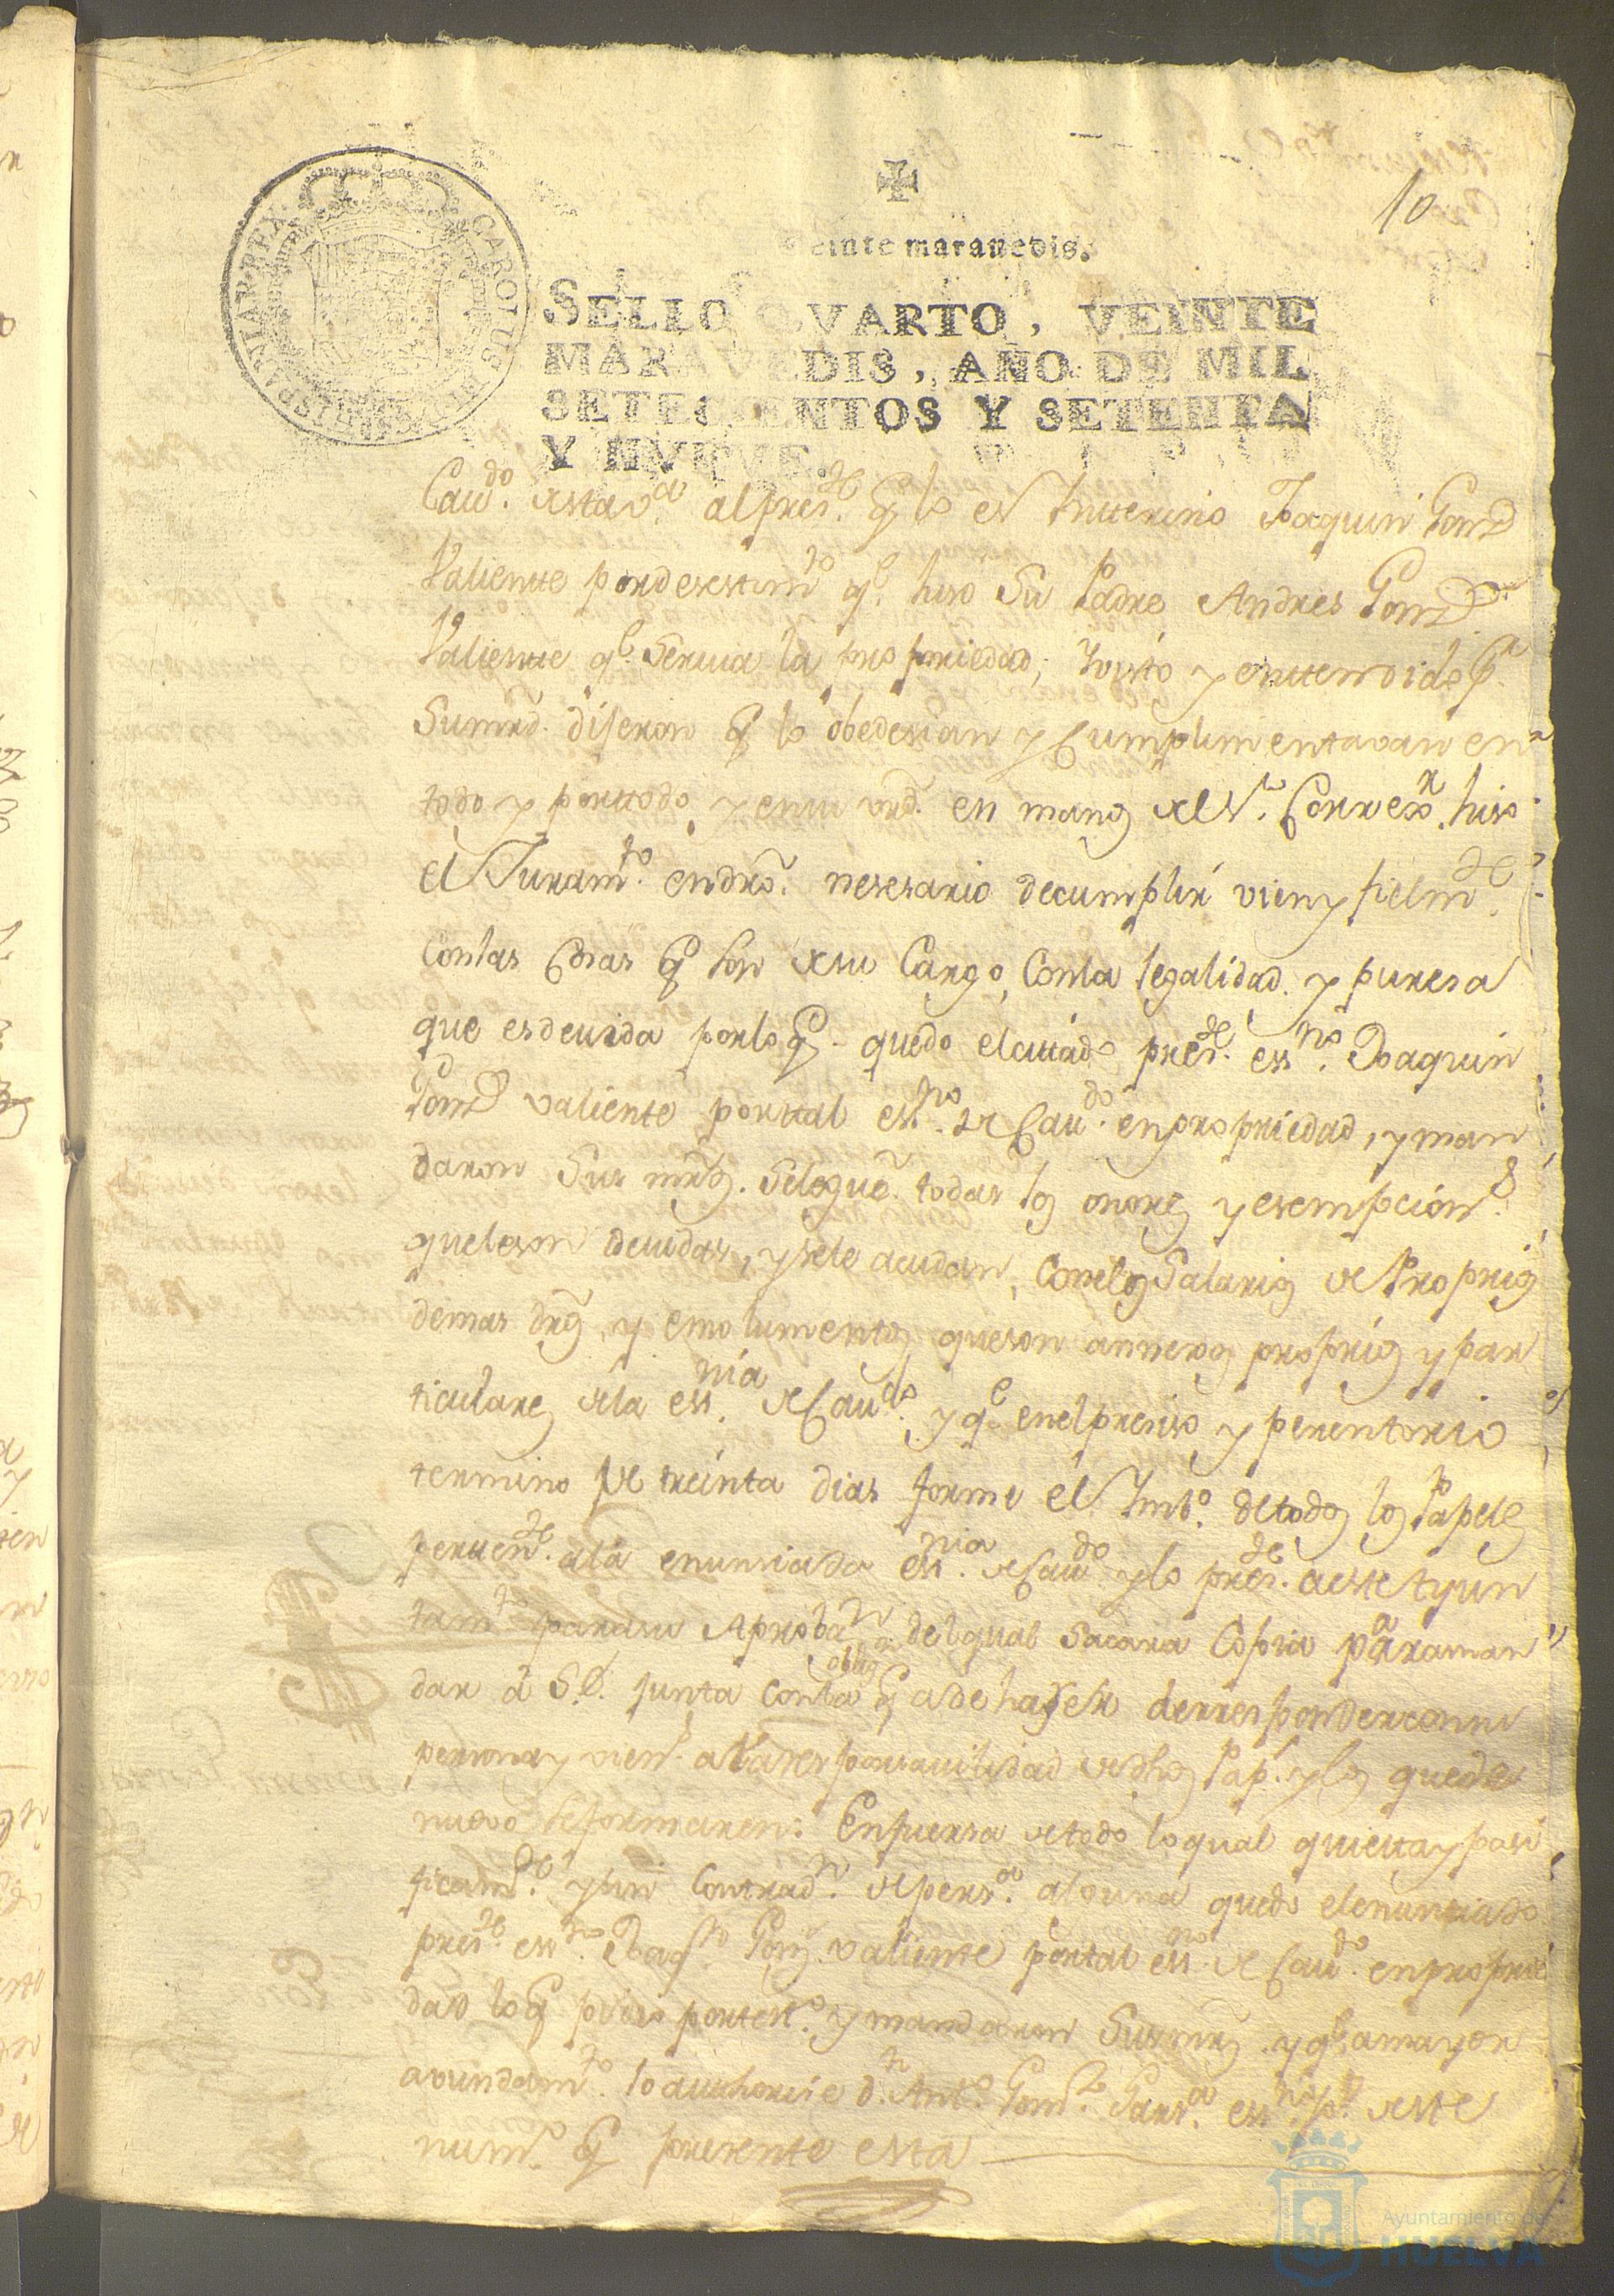 10
einte marauedis.
CAROLUS HISPANIAR. REX
SELLO QVARTO, VEINTE
MARAVEDIS, AÑO DE MIL
SETECIENTOS Y SETENTA
Y NVEVE.
Caudo. de esta va. al preste. q lo es Ynterino Joaquin Gonz
Valiente por desestimto. qe. hiso su Padre Andres Gonz
Valiente qe. seruia la propriedad; y visto y entendido pr.
Sumrd. diseron q lo obedesian y Cumplimentavan en
todo y por todo, y en su vrd. en manos del Sr. Correxor. hiso
el Juramto. en dro. nesesario de cumplir vien y fielmte.
con las cosas q son de su Cargo, con la legalidad y puresa
que es deuida por lo q. quedo el citado preste. essno. Joaquin
Gonz valiente por tal essno. de Caudo. en propriedad, y man
daron Sus mrds. se le gue. todas los onores y esempcions.
que le son deuidas, y se le acudan, con los Salarios de Proprios
demas dros, y emolumentos que son annexos proprios y par
ticulares de la essnia. de Caudo. y qe. en el presiso y perentorio
termino de treinta dias forme el Ynbo. de todos los Papeles
pertente. a la enunsiada essnia. de Caudo. y lo preste. a este Ayun
tamto. para su Aprobasn. del qual sacara Copia para man
dar a S.E. junta con la oblign q a de haser de responder con su
persona y viens. a la responsauilidad de dhos Pap. y los que de
nuevo se formaren: En fuersa de todo lo qual quieta y pasi
ficamte. y sin Contradn. de persa. alguna quedo el enunsiado
preste. essno. Joaqn. Gonz. valiente por tal essno. de Caudo. en proprie
dad lo q pidio por testo. y mandaron Sus mrds. y qe. a mayor
avundamto. lo authorise dn. Anto. Gomz. Garsa. essno. po. de este
numo. q presente esta
Ayuntamiento de
HUELVA